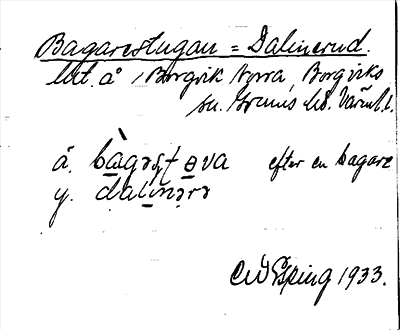 Bagarestugan = Dalinerud.
lht. å Borgvik Norra, Borgviks
sn. Grums hd. Värml. l.
ä. bàgəs̩tɵva efter en bagare
y. dalinərə
CW Esping 1933.